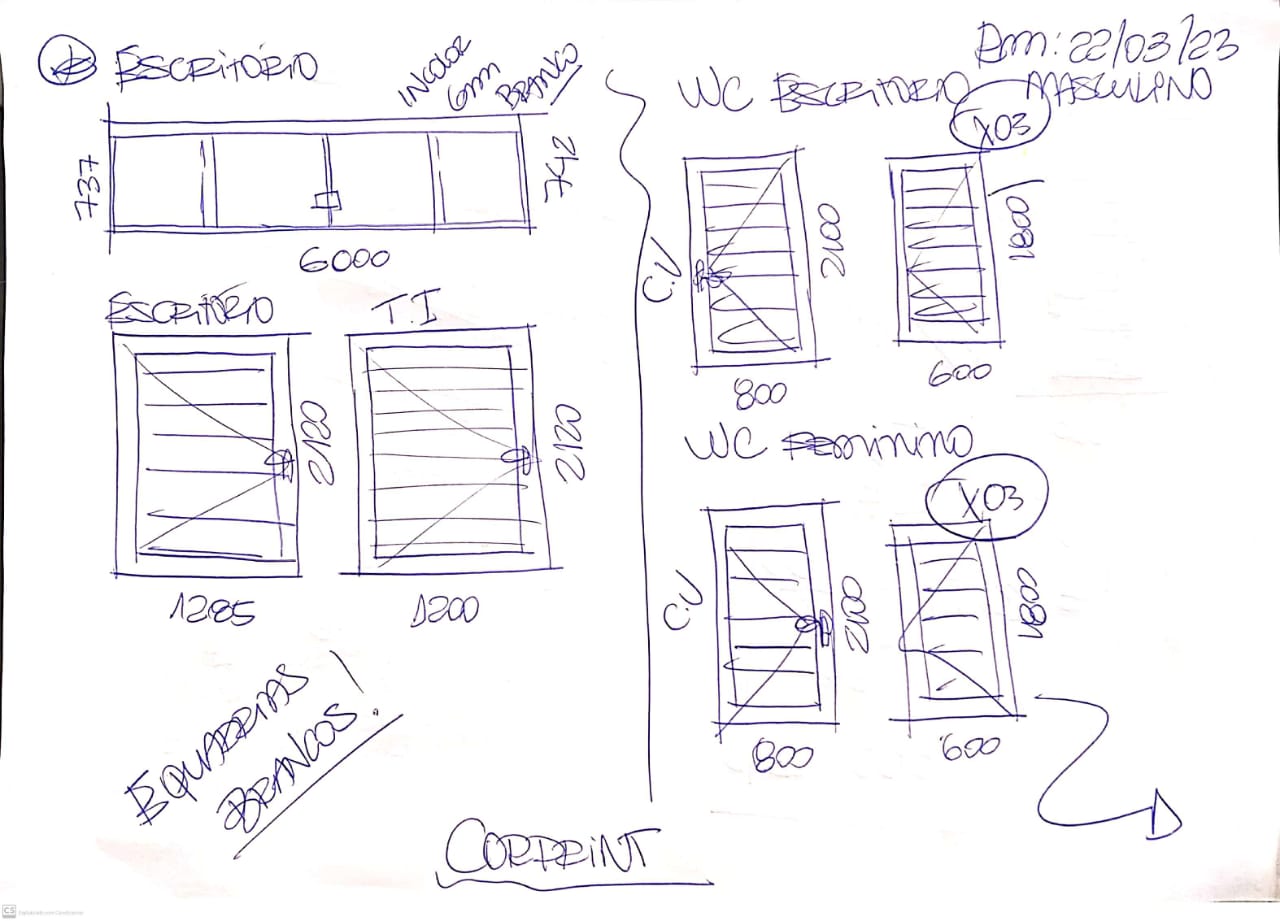 ESCRITÓRIO
INCOLOR
6mm
BRANCO
737
742
6000
ESCRITÓRIO
T.I
2120
2120
1285
1200
EQUADRIAS
BRANCOS!
22/03/23
WC ESCRITÓRIO MASCULINO
X03
C.V
2100
1800
800
600
WC FEMININO
X03
C.V
2100
1800
800
600
CORPRINT
CS Digitalizado com CamScanner